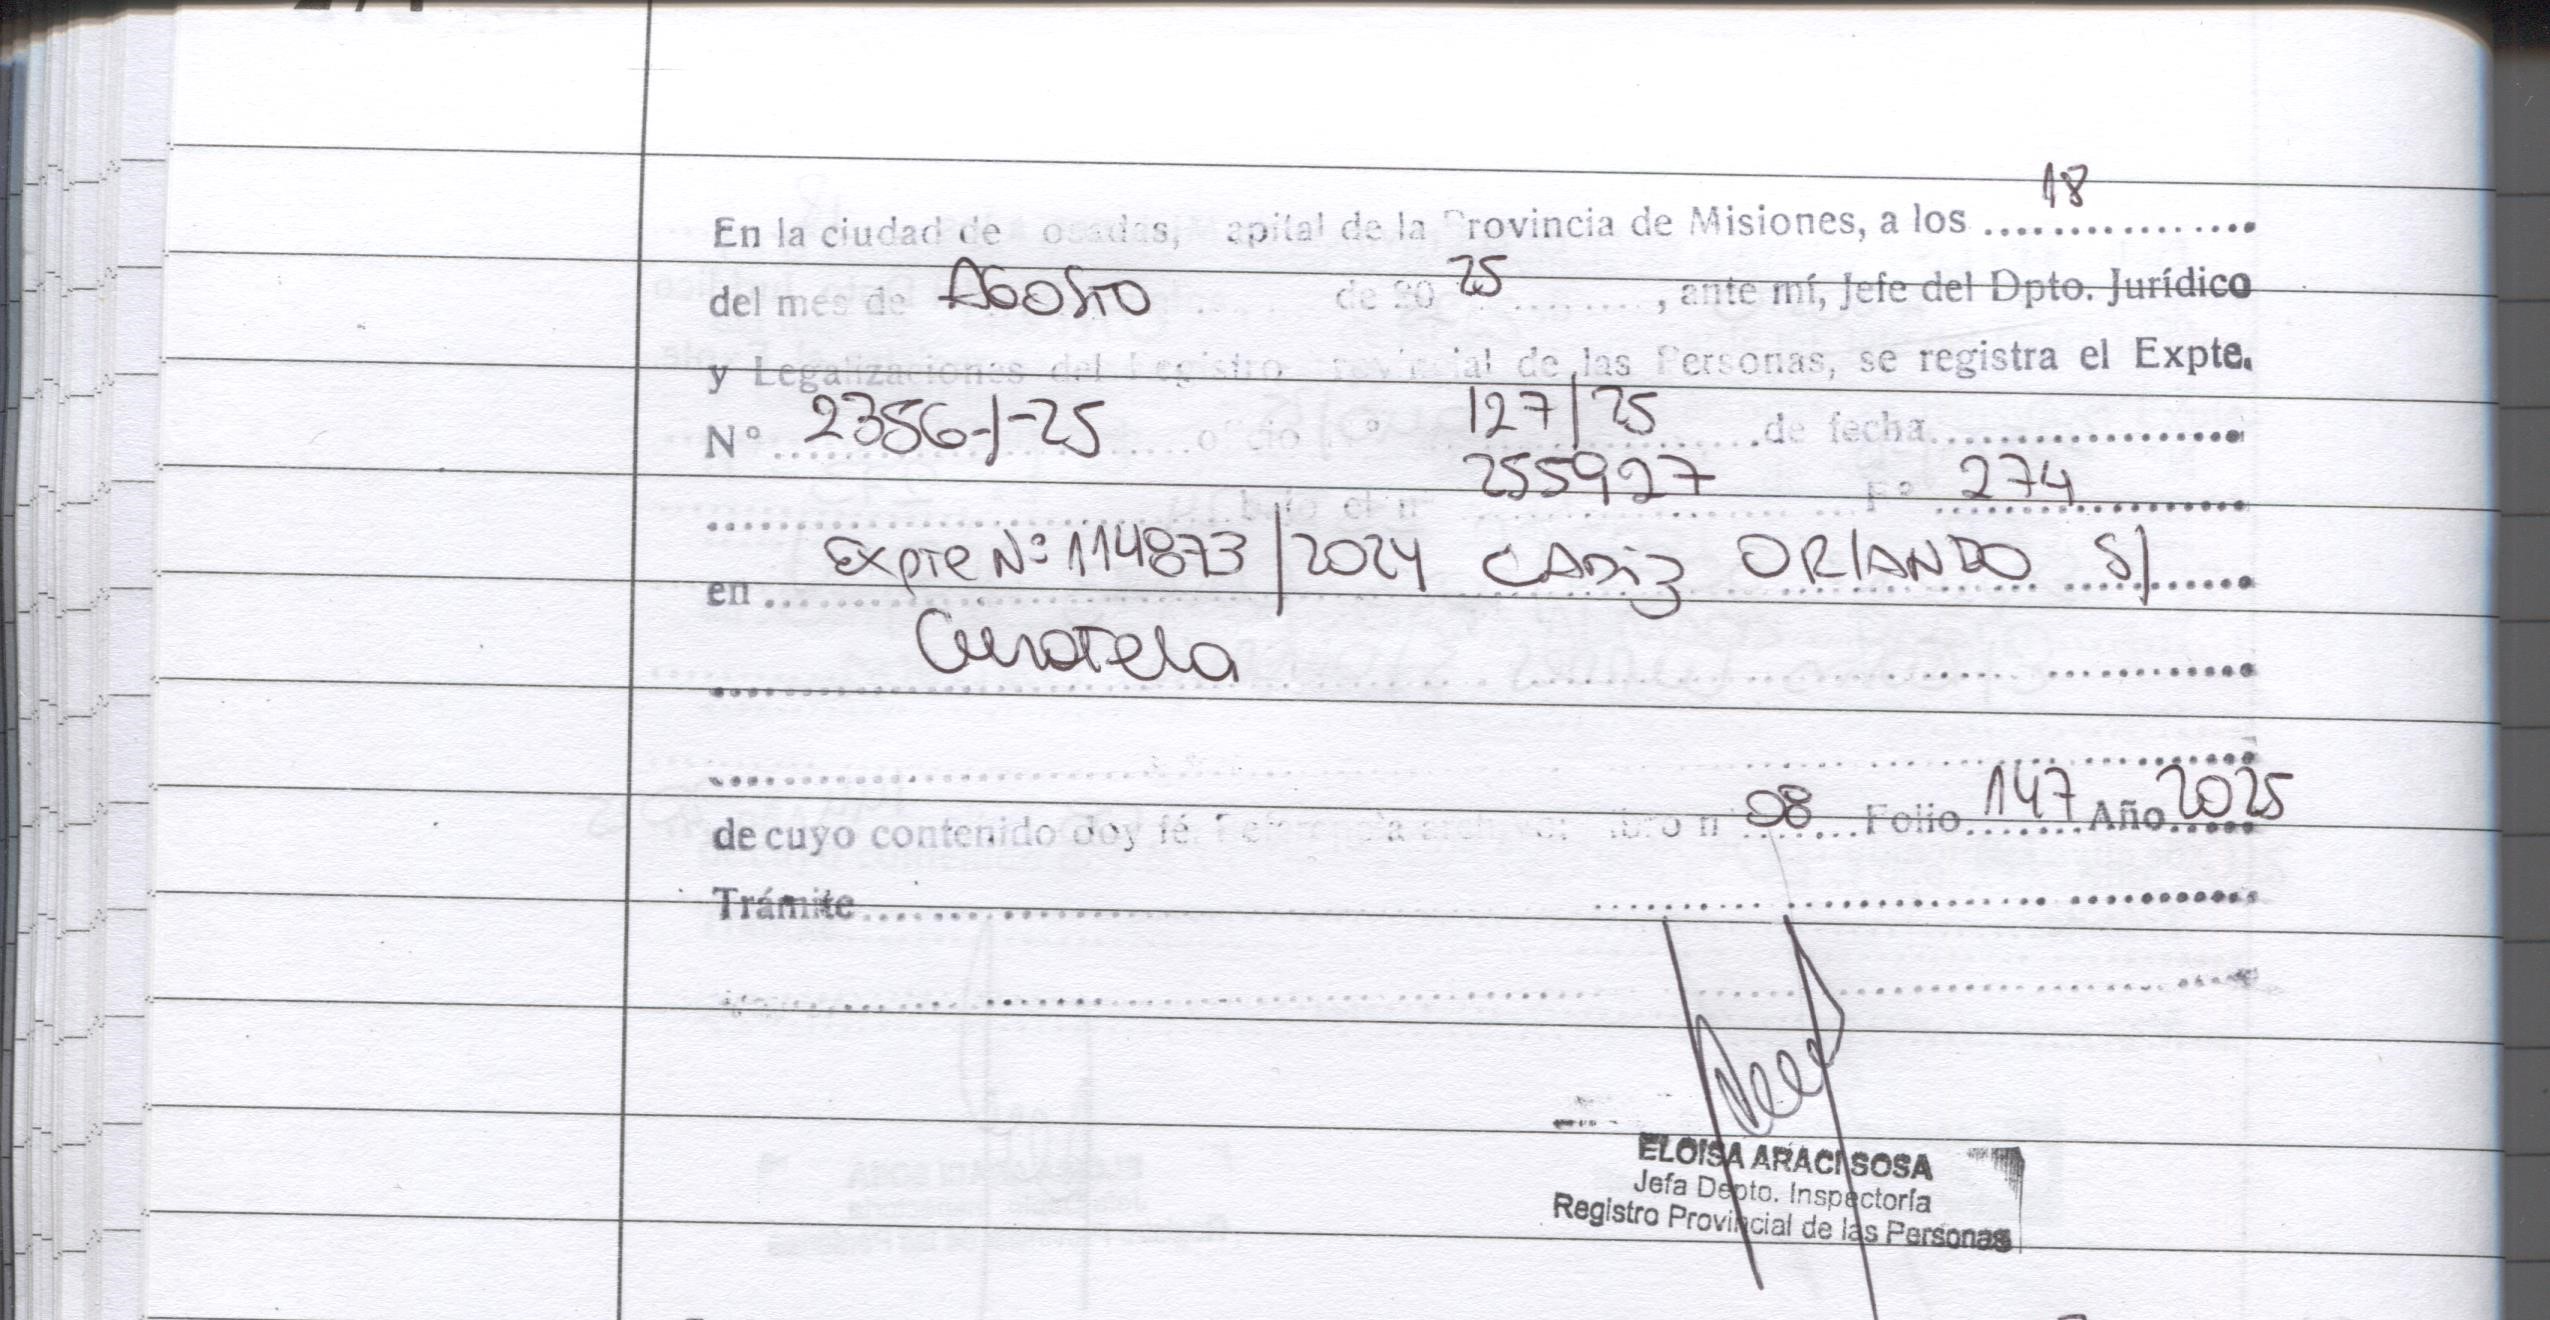 En la ciudad de osadas, apital de la Provincia de Misiones, a los 18
del mes de AGOSTO de 20 25, ante mí, Jefe del Dpto. Jurídico
y Legalizaciones del Registro Provincial de las Personas, se registra el Expte.
Nº 2356-J-25 oficio Nº 127/25 de fecha
bajo el nº 255927 Fº 274
en Expte Nº 114873/2024 CADiz ORLANDO S/
Curatela
de cuyo contenido doy fé. Referencia archivo: Libro nº 08 Folio 147 Año 2025
Trámite
ELOISA ARACI SOSA
Jefa Depto. Inspectoría
Registro Provincial de las Personas